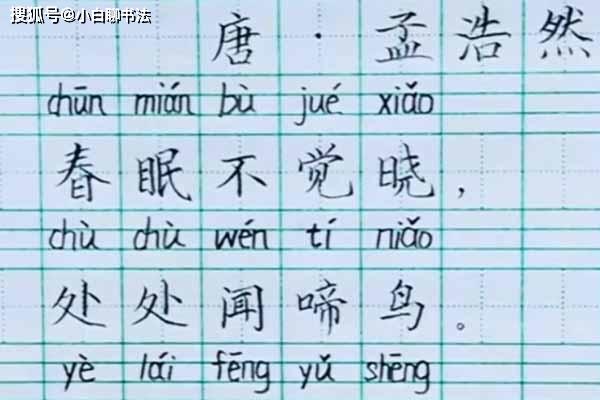 搜狐号@小白聊书法
唐·孟浩然
chūn mián bù jué xiǎo
春眠不觉晓，
chù chù wén tí niǎo
处处闻啼鸟。
yè lái fēng yǔ shēng